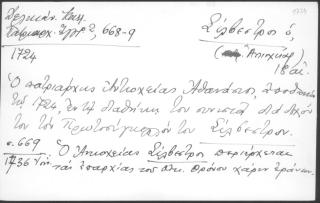 Δελικάν. Καλλ.
Πατριαρχ. Έγγρ. 2, 668-9
Σίλβεστρος ὁ,
(Ἀντιοχείας)
1724
18 αἰ.
Ὁ πατριάρχης Ἀντιοχείας Ἀθανάσιος ἀποθανὼν
τῷ 1724 ἐν τῇ διαθήκῃ του συνιστᾷ διάδοχόν
του τὸν Πρωτοσύγκελλόν του Σίλβεστρον.
σ. 669
1736
Ὁ Ἀντιοχείας Σίλβεστρος περιέρχεται
τὰς ἐπαρχίας τοῦ Θρόνου χάριν ἐράνων.